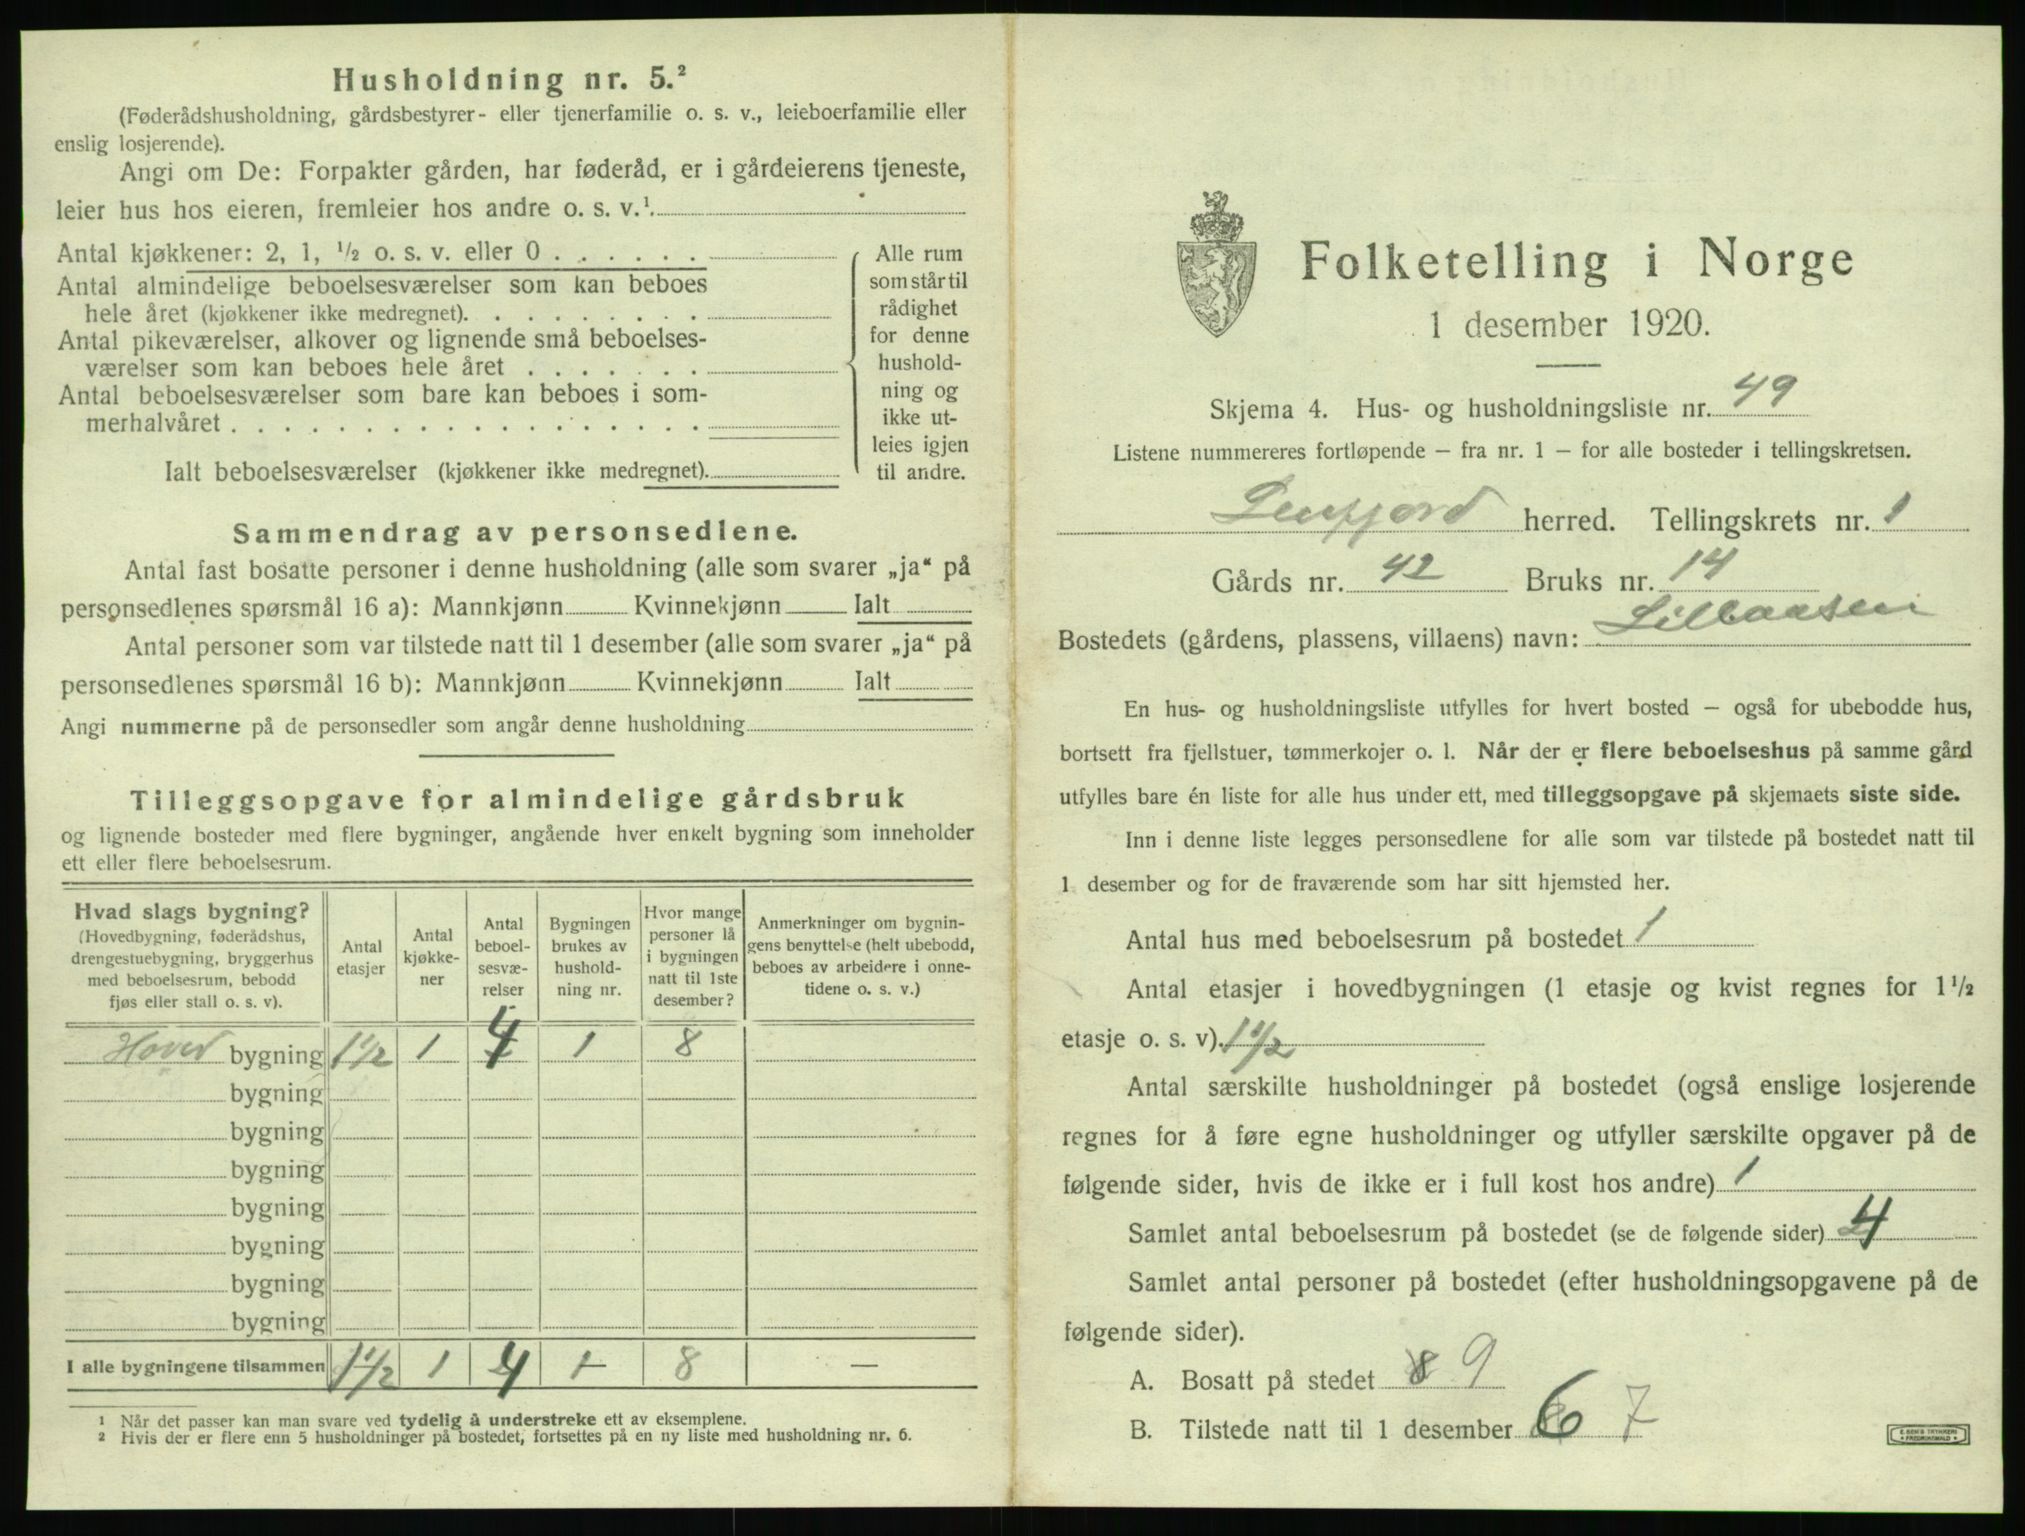 Husholdning nr. 5.²
(Føderådshusholdning, gårdsbestyrer- eller tjenerfamilie o. s. v., leieboerfamilie eller
enslig losjerende).
Angi om De: Forpakter gården, har føderåd, er i gårdeierens tjeneste,
leier hus hos eieren, fremleier hos andre o. s. v.¹.
Antal kjøkkener: 2, 1, ½ o. s. v. eller 0
Antal almindelige beboelsesværelser som kan beboes
hele året (kjøkkener ikke medregnet).
Antal pikeværelser, alkover og lignende små beboelses-
værelser som kan beboes hele året
Antal beboelsesværelser som bare kan beboes i som-
merhalvåret
Ialt beboelsesværelser (kjøkkener ikke medregnet).
Alle rum
som står til
rådighet
for denne
hushold-
ning og
ikke ut-
leies igjen
til andre.
Sammendrag av personsedlene.
Antal fast bosatte personer i denne husholdning (alle som svarer „ja“ på
personsedlenes spørsmål 16 a): Mannkjønn Kvinnekjønn Ialt
Antal personer som var tilstede natt til 1 desember (alle som svarer „ja“ på
personsedlenes spørsmål 16 b): Mannkjønn Kvinnekjønn Ialt
Angi nummerne på de personsedler som angår denne husholdning
Tilleggsopgave for almindelige gårdsbruk
og lignende bosteder med flere bygninger, angående hver enkelt bygning som inneholder
ett eller flere beboelsesrum.
Hvad slags bygning?
(Hovedbygning, føderådshus,
drengestuebygning, bryggerhus
med beboelsesrum, bebodd
fjøs eller stall o. s. v).
Antal
etasjer
Antal
kjøkke-
ner
Antal
beboel-
sesvæ-
relser
Bygningen
brukes av
hushold-
ning nr.
Hvor mange
personer lå
i bygningen
natt til 1ste
desember?
Anmerkninger om bygnin-
gens benyttelse (helt ubebodd,
beboes av arbeidere i onne-
tidene o. s. v.)
Hoved bygning 1½ 1 4 1 8
bygning
bygning
bygning
bygning
bygning
bygning
bygning
I alle bygningene tilsammen 1½ 1 4 1 8 —
¹ Når det passer kan man svare ved tydelig å understreke ett av eksemplene.
² Hvis der er flere enn 5 husholdninger på bostedet, fortsettes på en ny liste med husholdning nr. 6.
Folketelling i Norge
1 desember 1920.
Skjema 4. Hus- og husholdningsliste nr. 49
Listene nummereres fortløpende – fra nr. 1 – for alle bosteder i tellingskretsen.
herred. Tellingskrets nr. 1
Gårds nr. 42 Bruks nr. 14
Bostedets (gårdens, plassens, villaens) navn: Lillaasen
En hus- og husholdningsliste utfylles for hvert bosted – også for ubebodde hus,
bortsett fra fjellstuer, tømmerkojer o. l. Når der er flere beboelseshus på samme gård
utfylles bare én liste for alle hus under ett, med tilleggsopgave på skjemaets siste side.
Inn i denne liste legges personsedlene for alle som var tilstede på bostedet natt til
1 desember og for de fraværende som har sitt hjemsted her.
Antal hus med beboelsesrum på bostedet 1
Antal etasjer i hovedbygningen (1 etasje og kvist regnes for 1½
etasje o. s. v). 1½
Antal særskilte husholdninger på bostedet (også enslige losjerende
regnes for å føre egne husholdninger og utfyller særskilte opgaver på de
følgende sider, hvis de ikke er i full kost hos andre) 1
Samlet antal beboelsesrum på bostedet (se de følgende sider) 4
Samlet antal personer på bostedet (efter husholdningsopgavene på de
følgende sider).
A. Bosatt på stedet 8 9
B. Tilstede natt til 1 desember 6 7